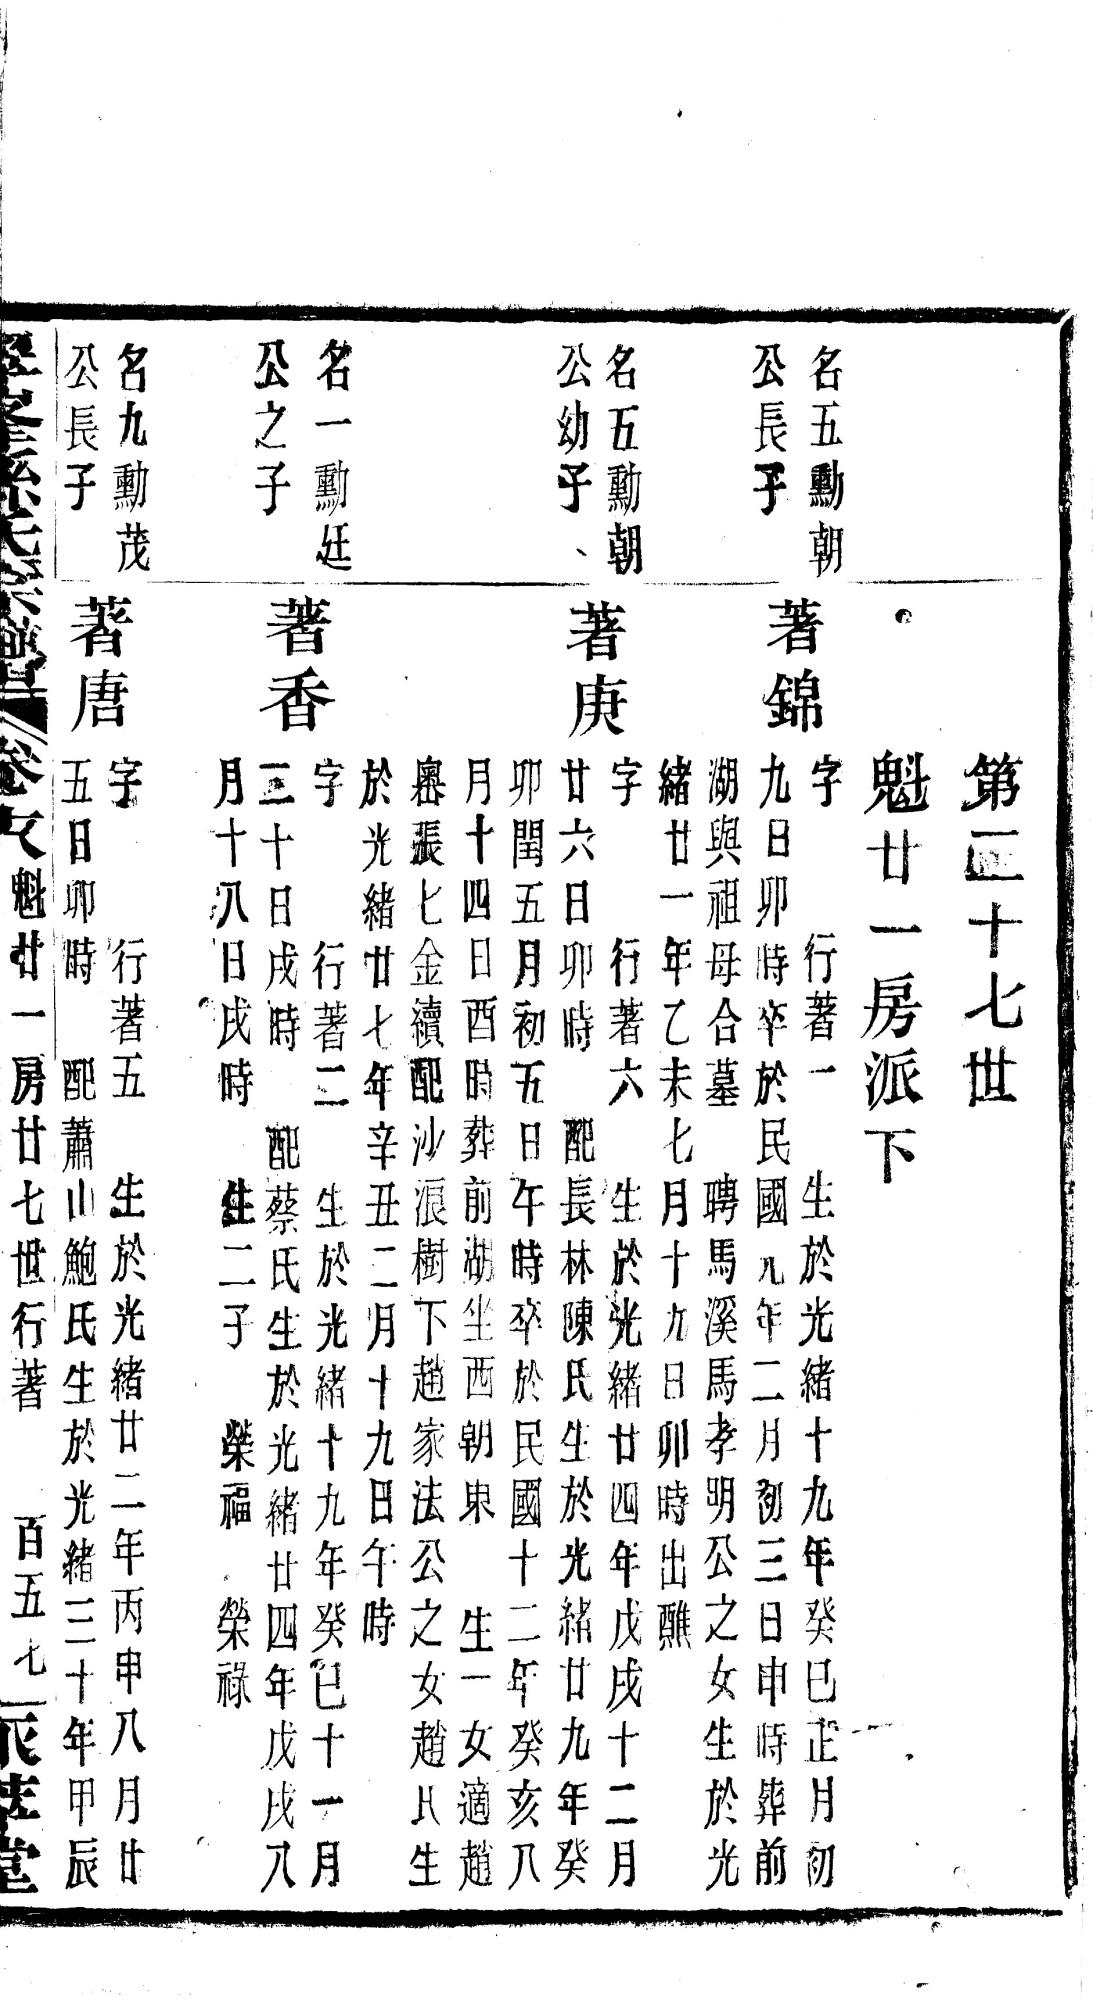 第二十七世
魁廿一房派下
名五勳朝
公長子
著錦
字　行著一　生於光緒十九年癸巳正月初
九日卯時卒於民國九年二月初三日申時葬前
湖與祖母合墓　聘馬溪馬孝明公之女生於光
緒廿一年乙未七月十九日卯時出醮
名五勳朝
公幼子
著庚
字　行著六　生於光緒廿四年戊戌十二月
廿六日卯時　配長林陳氏生於光緒廿九年癸
卯閏五月初五日午時卒於民國十二年癸亥八
月十四日酉時葬前湖坐西朝東　生一女適趙
嶴張七金續配沙浪樹下趙家法公之女趙氏生
於光緒廿七年辛丑二月十九日午時
名一勳廷
公之子
著香
字　行著二　生於光緒十九年癸巳十一月
三十日戌時　配蔡氏生於光緒廿四年戊戌八
月十八日戌時　生二子　榮福　榮祿
名九勳茂
公長子
著唐
字　行著五　生於光緒廿二年丙申八月廿
五日卯時　配蕭山鮑氏生於光緒三十年甲辰
孫氏宗譜　卷　魁廿一房廿七世行著　百五七　堂